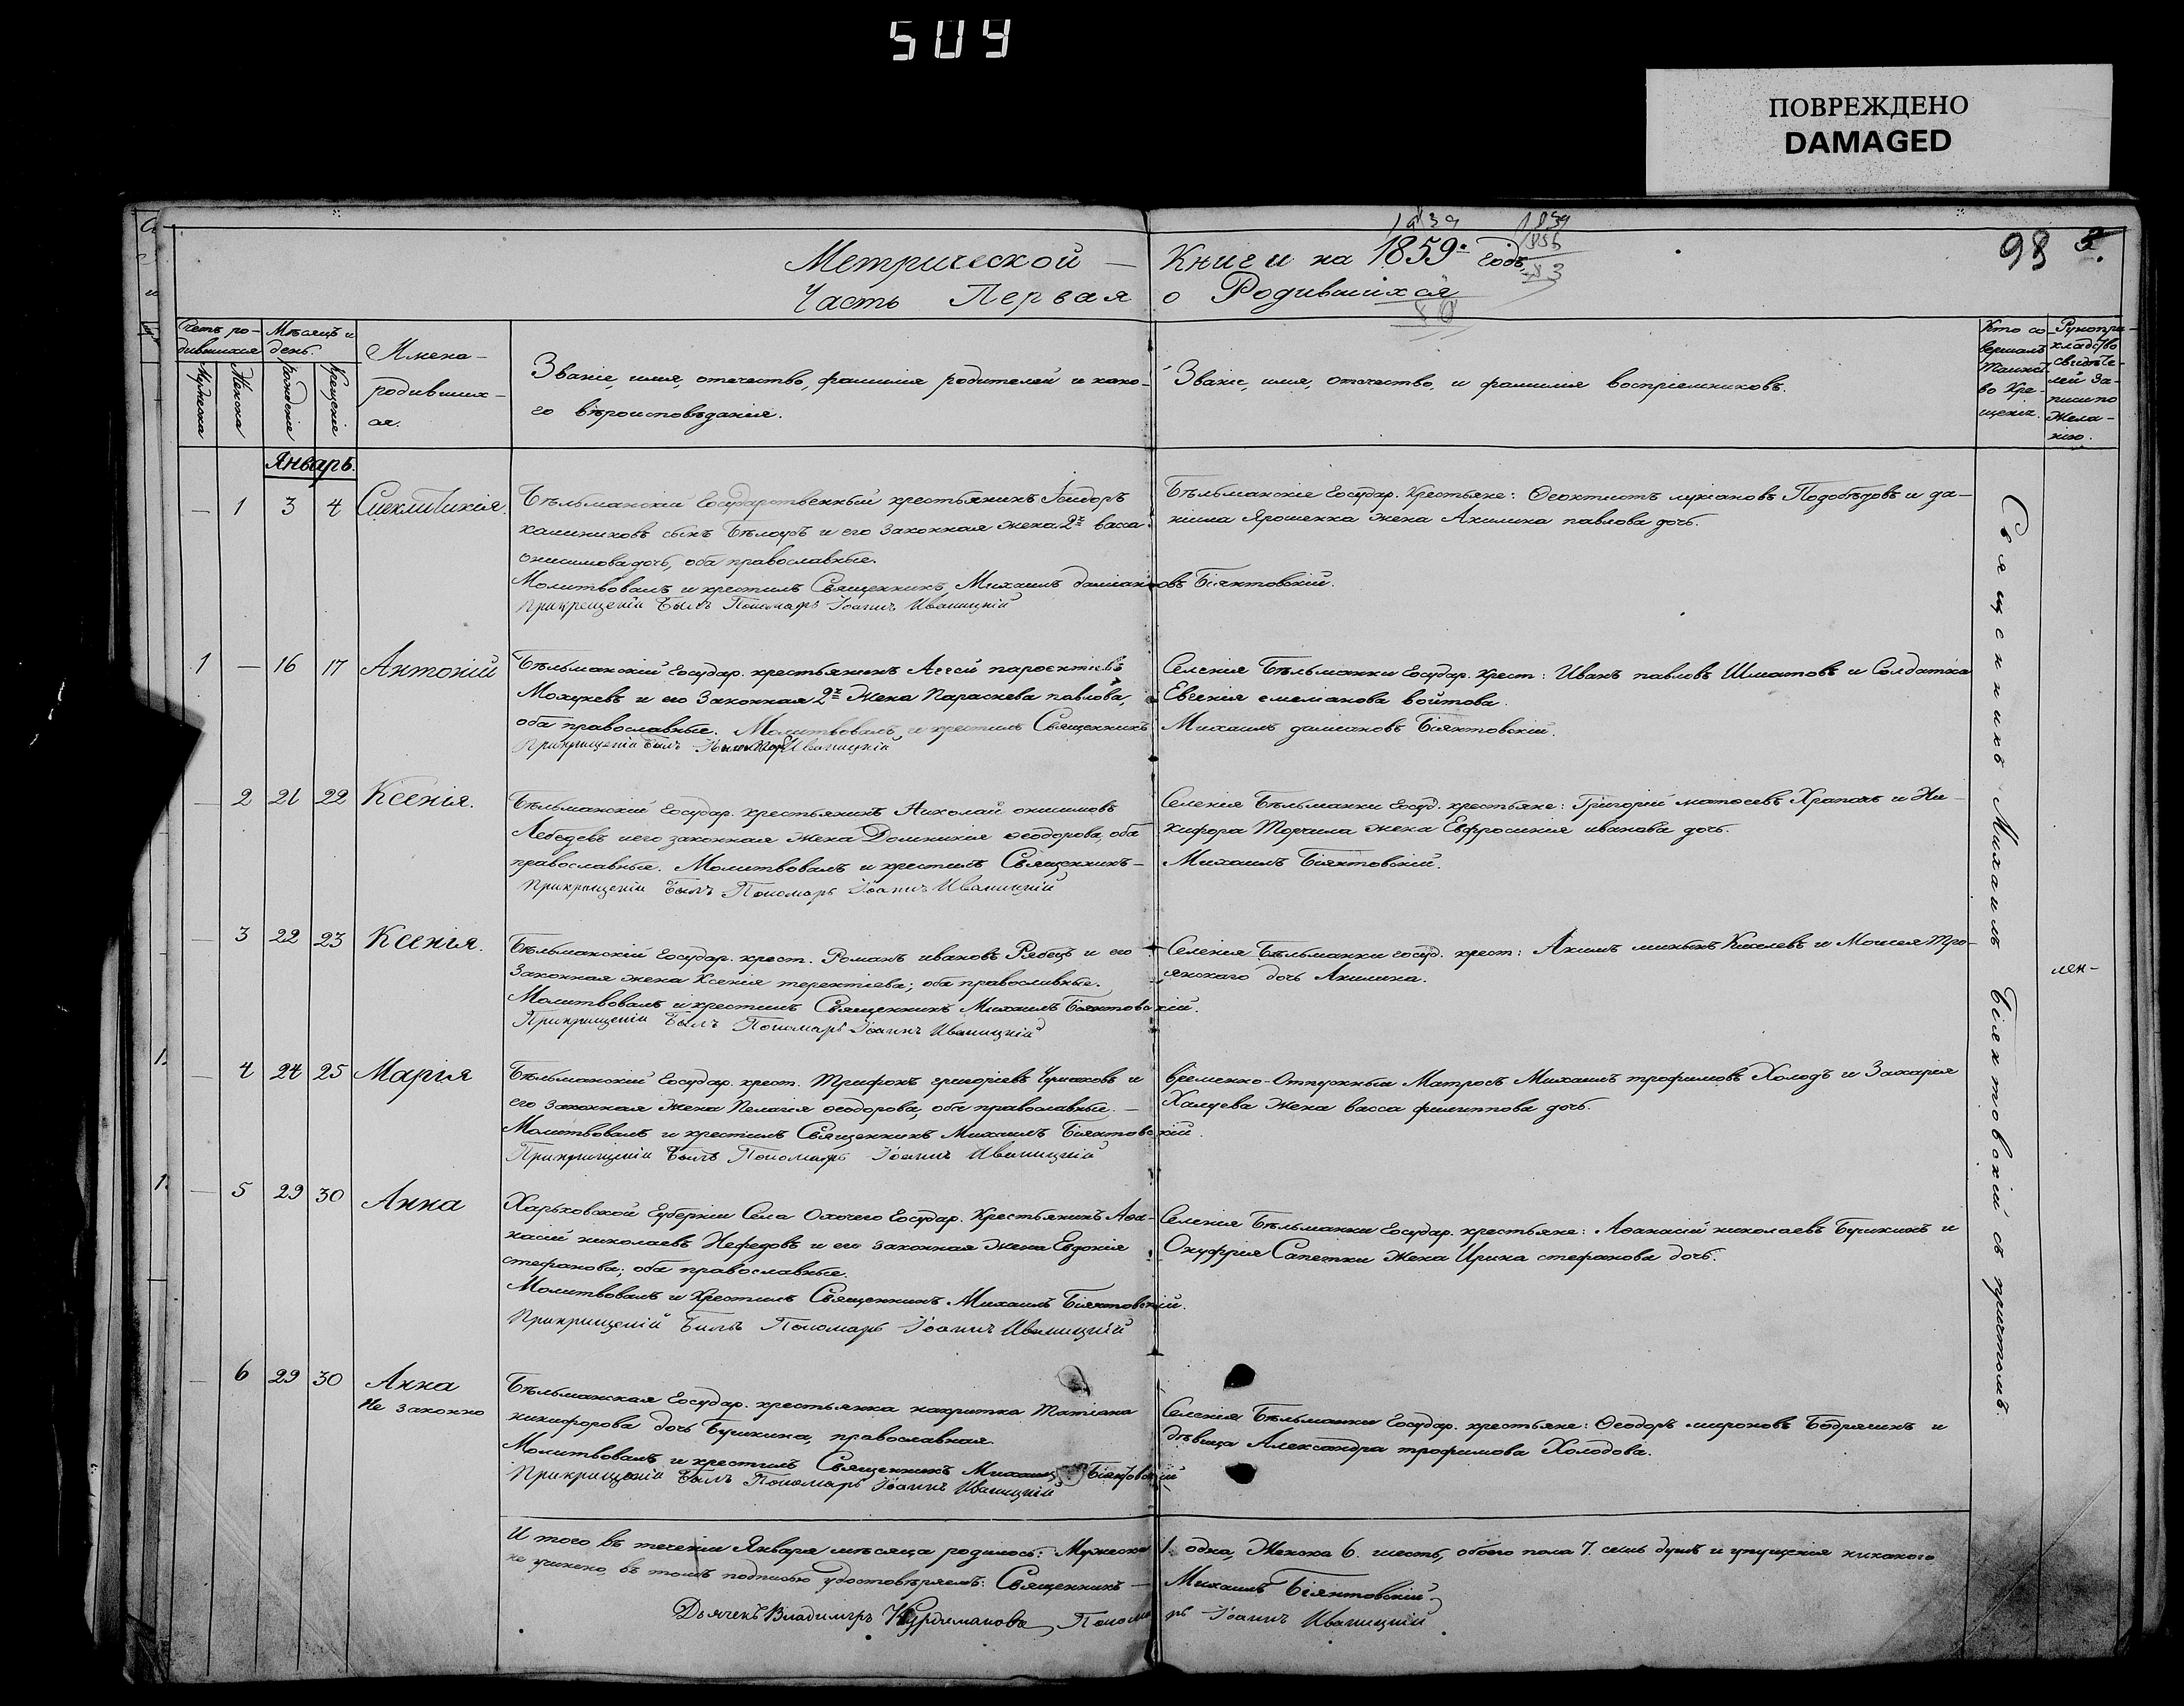 509
ПОВРЕЖДЕНО
DAMAGED
98
Метрической — Книги на 1859 годъ
Часть Первая о Родившихся
Счетъ ро-
дившихся
Мужеска
Женска
Мѣсяцъ и
день.
рожденія
Крещенія
Имена
родивших-
ся.
Званіе, имя, отечество, фамилія родителей и како-
го вѣроисповѣданія.
Званіе, имя, отечество, и фамилія воспріемниковъ.
Кто со-
вершалъ
таинст-
во Кре-
щенія.
Рукопри-
кладство
свидѣте-
лей за-
писи по
жела-
нію.
Январь.
— 1 3 4
Бѣльманскій Государственный крестьянинъ Исидоръ
калиниковъ сынъ и его законная жена 2я васса
онисимова дочь, оба православные.
Молитвовалъ и крестилъ Священникъ Михаилъ даміановъ Біянтовскій.
При крещеніи Былъ Пономарь Іоаннъ Иваницкій
Бѣльманскіе Государ. Крестьяне: Ѳеоктистъ лукіановъ Подобѣдовъ и да-
ниила Ярошенка жена Акилина павлова дочь.
1 — 16 17 Антоній
Бѣльманскій Государ. крестьянинъ
и его Законная 2я Жена Параскева павлова,
оба православные. Молитвовалъ и крестилъ Священникъ Михаилъ даміановъ Біянтовскій.
При крещеніи былъ Иваницкій
Селенія Бѣльманки Государ. крест: Иванъ павловъ Шматовъ и Солдатка
Евгенія емеліанова войтова.
— 2 21 22 Ксенія.
Бѣльманскій Государ. крестьянинъ Николай онисимовъ
Лебедевъ и его законная жена Домникія ѳеодорова, оба
православные. Молитвовалъ и крестилъ Священникъ — Михаилъ Біянтовскій.
При крещеніи Былъ Пономарь Іоаннъ Иваницкій
Селенія Бѣльманки Госуд. крестьяне: Григорій матѳеевъ Храпачъ и Ни-
кифора Торчила жена Евфросинія иванова дочь.
— 3 22 23 Ксенія.
Бѣльманскій Государ. крест. Романъ ивановъ Рябецъ и его
Законная жена Ксенія терентіева; оба православные.
Молитвовалъ и крестилъ Священникъ Михаилъ Біянтовскій.
При крещеніи Былъ Пономарь Іоаннъ Иваницкій
Селенія Бѣльманки госуд. крест: Акимъ Киселевъ и Моисея Тро-
янскаго дочь Акилина.
— 4 24 25 Марія
Бѣльманскій Государ. крест. Трифонъ григоріевъ Чумаковъ и
его законная жена Пелагія ѳеодорова, оба православные. —
Молитвовалъ и крестилъ Священникъ Михаилъ Біянтовскій.
При крещеніи Былъ Пономарь Іоаннъ Иваницкій
временно-Отпускный Матросъ Михаилъ трофимовъ Холодъ и Захарія
жена васса филиппова дочь.
— 5 29 30 Анна
Харьковской Губерніи Села Охочего Государ. Крестьянинъ Аѳа-
насій николаевъ Нефедовъ и его законная жена Евдокія
стефанова; оба православные.
Молитвовалъ и Крестилъ Священникъ Михаилъ Біянтовскій.
При крещеніи Былъ Пономарь Іоаннъ Иваницкій
Селенія Бѣльманки Государ. крестьяне: Аѳанасій николаевъ Бушкинъ и
Онуфрія Сапетки Жена Ирина стефанова дочь.
— 6 29 30 Анна
Не законно
Бѣльманская Государ. крестьянка накрытка Татіана
никифорова дочь Бушкина, православная.
Молитвовалъ и крестилъ Священникъ Михаилъ Біянтовскій
При крещеніи Былъ Пономарь Іоаннъ Иваницкій
Селенія Бѣльманки Государ. крестьяне: Ѳеодоръ мироновъ Бодрячинъ и
дѣвица Александра трофимова Холодова.
Священникъ Михаилъ Біянтовскій съ причтомъ.
лен-
И того въ теченіи Января мѣсяца родилось: Мужеска 1. одна, Женска 6. шесть, обоего пола 7. семь душъ и упущенія никакого
не учинено, въ томъ подписью удостовѣряемъ: Священникъ — Михаилъ Біянтовскій
Дьячекъ Владимиръ Пономарь Іоаннъ Иваницкій